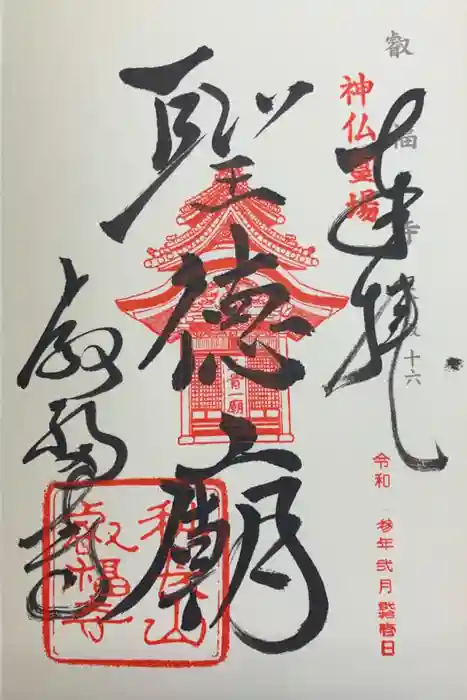 叡福寺 十六
神仏霊場
奉拝
令和 参年弐月 日
聖徳廟
骨一廟
叡福寺
山
叡福寺